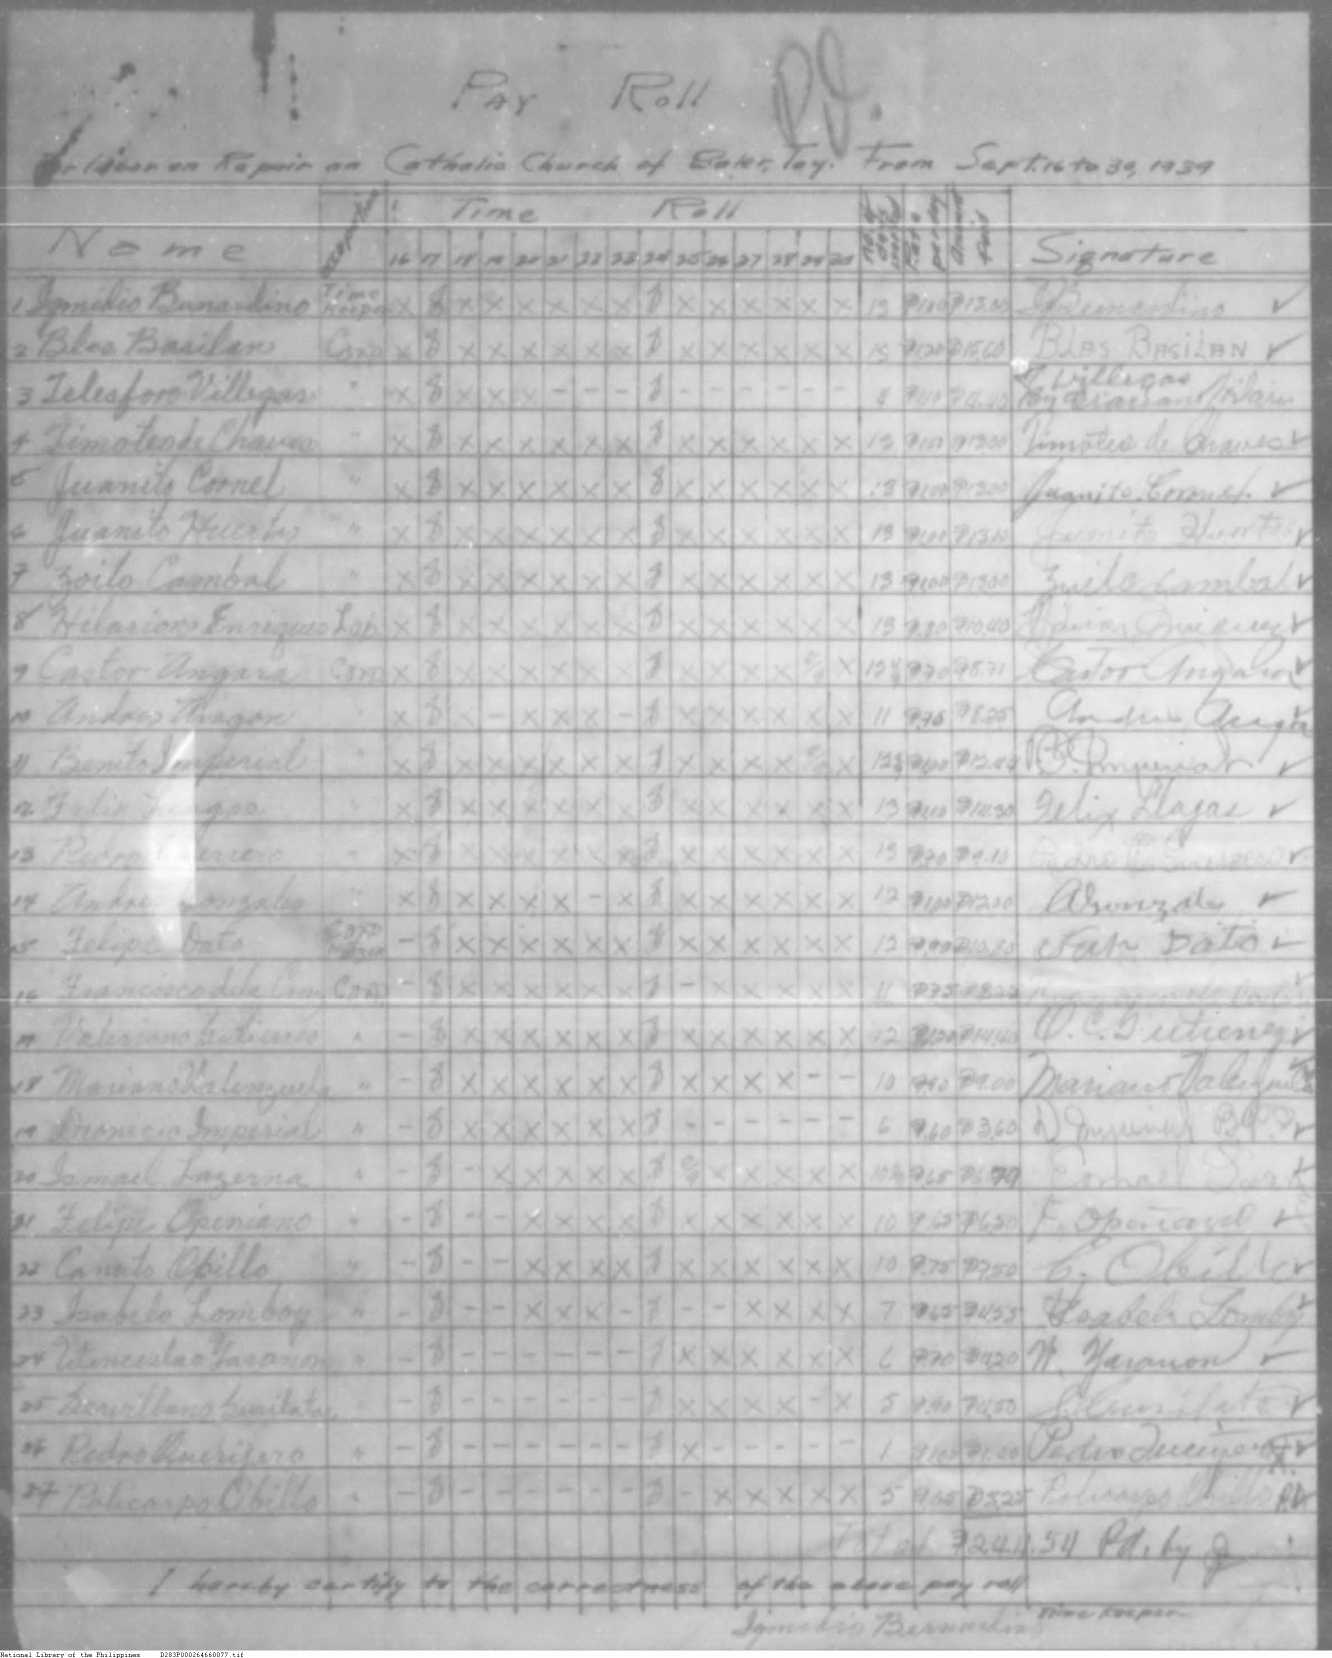 Pay Roll Pd.
For labor on Repair on Catholic Church of Baler, Tay. From Sept. 16 to 30, 1939
Name Occupation Time Roll No. of days Rate per day Amount Paid Signature
16 17 18 19 20 21 22 23 24 25 26 27 28 29 30
1 Igmidio Bernardino Time Keeper x S x x x x x x S x x x x x x 13 ₱1.00 ₱13.00 ✓
2 Blas Basilan Carp x S x x x x x x S x x x x x x 13 ₱1.20 ₱15.60 BLAS BASILAN ✓
3 Telesforo Villegas " x S x x x - - - S - - - - - - 4 ₱1.10 ₱4.40 T. Villegas
4 Timoteo de Chavez " x S x x x x x x S x x x x x x 13 ₱1.00 ₱13.00 Timoteo de Chavez ✓
5 Juanito Cornel " x S x x x x x x S x x x x x x 13 ₱1.00 ₱13.00 Juanito Coronel ✓
6 Juanito Huerto " x S x x x x x x S x x x x x x 13 ₱1.00 ₱13.00 Juanito ✓
7 Zoilo Cambal " x S x x x x x x S x x x x x x 13 ₱1.00 ₱13.00 Zoilo Cambal ✓
8 Hilarion Enriquez Lab. x S x x x x x x S x x x x x x 13 ₱.80 ₱10.40 ✓
9 Castor Angara Carp x S x x x x x x S x x x x x ₱.70 ₱8.71 Castor Angara ✓
10 Andres Aragon " x S x - x x x - S x x x x x x 11 ₱.75 ₱8.25 Andres Aragon
11 Benito Imperial " x S x x x x x x S x x x x x ₱1.00 B. Imperial ✓
12 Felix Llagas " x S x x x x x x S x x x x x x 13 ₱1.10 ₱14.30 Felix Llagas ✓
13 Pedro Guerrero " x S x x x x x x S x x x x x x 13 ₱.70 ₱9.10 Pedro ✓
14 Andres Gonzales " x S x x x x - x S x x x x x x 12 ₱1.00 ₱12.00 A Gonzales ✓
15 Felipe Dato Carp - S x x x x x x S x x x x x x 12 ₱.90 ₱10.80 Dato ✓
16 Francisco de la Cruz Carp. - S x x x x x x S - x x x x x 11 ₱.75 ₱8.25 ✓
17 Valeriano Gutierrez " - S x x x x x x S x x x x x x 12 ₱1.20 ₱14.40 V. C. Gutierrez ✓
18 Mariano Valenzuela " - S x x x x x x S x x x x - - 10 ₱.90 ₱9.00 Mariano Valenzuela
19 Dionecio Imperial " - S x x x x x x S - - - - - - 6 ₱.60 ₱3.60 D Imperial ✓
20 Ismael Lazerna " - S - x x x x x S x x x x x ₱.65 ✓
21 Felipe Openiano " - S - - x x x x S x x x x x x 10 ₱.65 ₱6.50 F. Openiano ✓
22 Canuto Obillo " - S - - x x x x S x x x x x x 10 ₱.75 ₱7.50 C. Obillo ✓
23 Isabelo Lomboy " - S - - x x x - S - - x x x x 7 ₱.65 ₱4.55 Isabelo Lomboy
24 Wenceslao Yaranon " - S - - - - - - S x x x x x x 6 ₱.70 ₱4.20 W. Yaranon ✓
25 " - S - - - - - - S x x x x - x 5 ₱.90 ₱4.50 ✓
26 Pedro Querijero " - S - - - - - - S x - - - - - 1 ₱1.00 ₱1.00 Pedro Querijero
27 Policarpo Obillo " - S - - - - - - S - x x x x x 5 ₱1.05 ₱5.25 Policarpo Obillo
Total ₱241.54 Pd. by
I hereby certify to the correctness of the above pay roll
Igmidio Bernardino Time Keeper
National Library of the Philippines D283P000264660077.tif